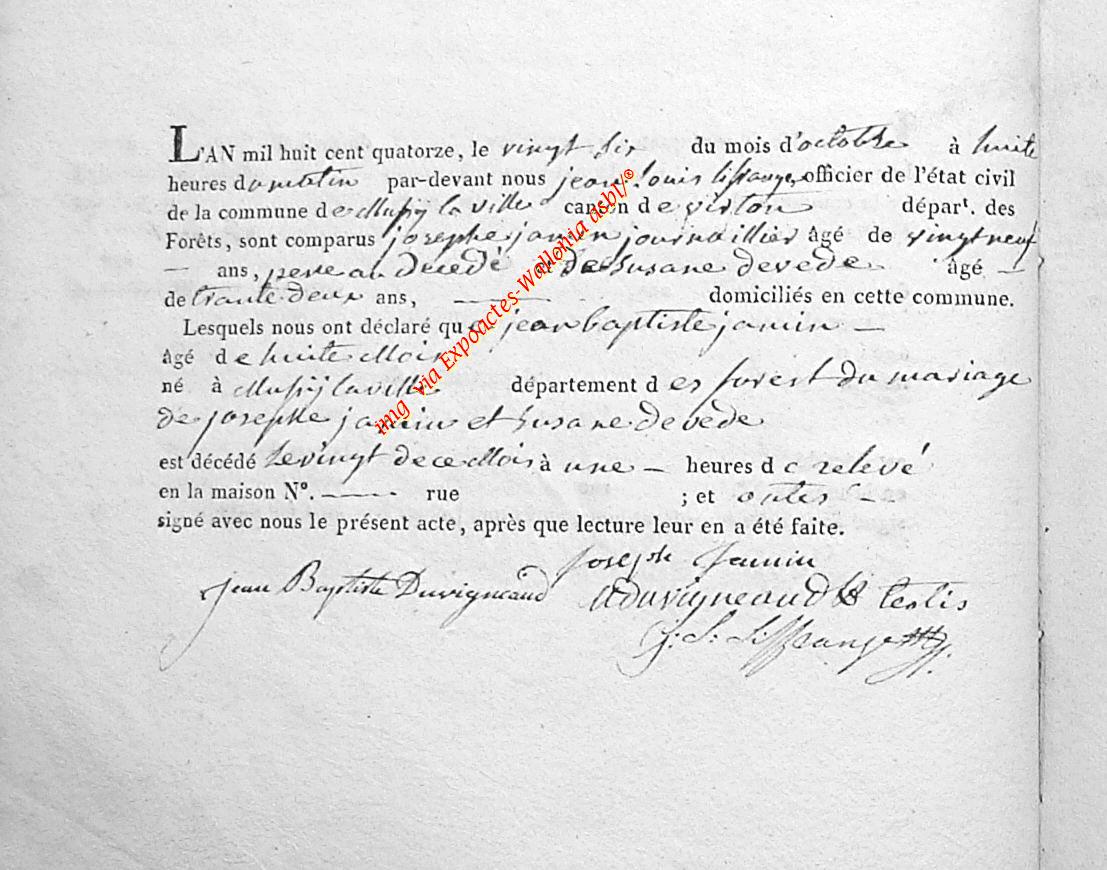 L'AN mil huit cent quatorze, le vingt six du mois d'octobre à huite
heures du matin par-devant nous jean Louis lissrange, officier de l'état civil
de la commune de Mussy la ville canton de virton dépar.t des
Forêts, sont comparus josephe jamin journaillier âgé de vingt neuf
— ans, pere au Decedé et De Susane devede âgé —
de trante deux ans, — domiciliés en cette commune.
Lesquels nous ont déclaré que jean baptiste jamin —
âgé de huite Mois
né à Mussy la ville département des forest du mariage
de josephe jamin et Susane devede
est décédé Le vingt de ce Mois à une — heures de relevé
en la maison N°. — rue ; et ont
signé avec nous le présent acte, après que lecture leur en a été faite.
Joseph Jamin
jean Baptiste Duvigneaud Aduvigneaud testis
img via Expoactes-Wallonia asbl/®